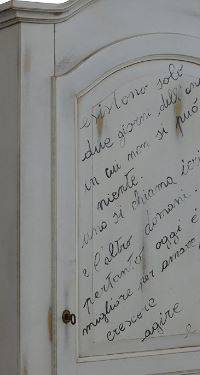 esistono solo
due giorni dell'an
in cui non si può
niente.
uno si chiama ieri
e l'altro domani.
pertanto oggi è
migliore per amare
crescere
agire